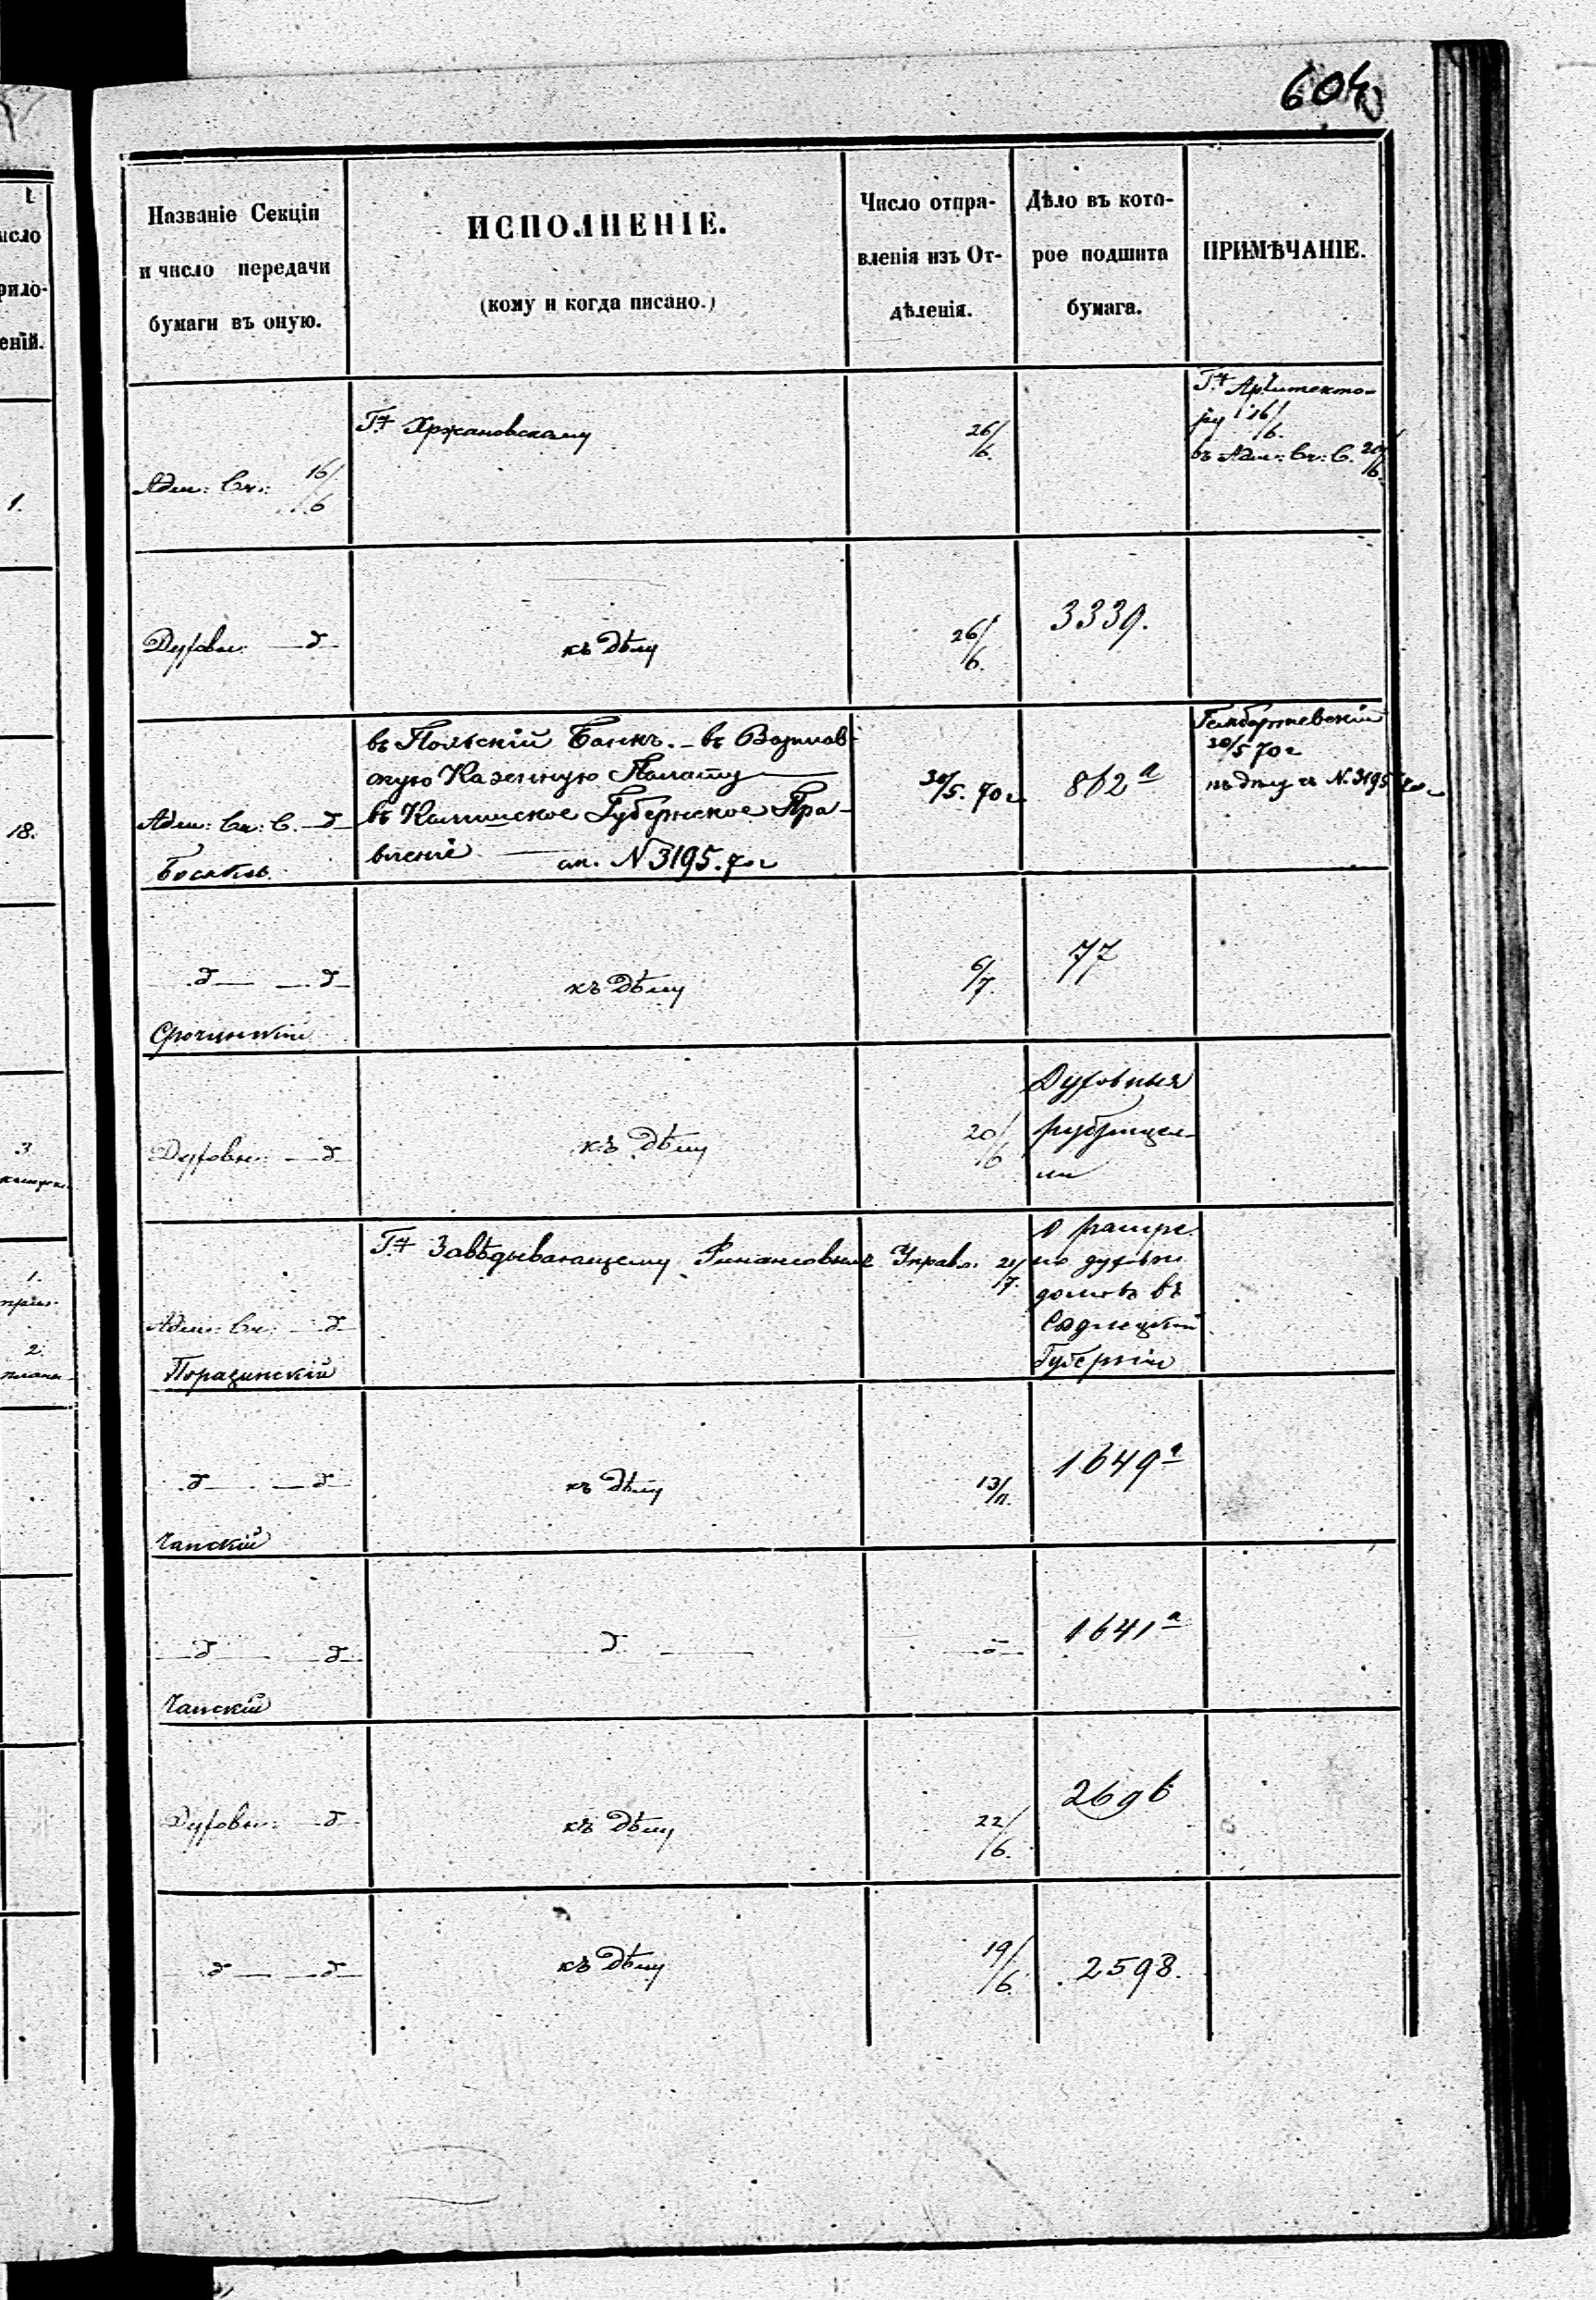 604
Названіе Секціи
и число передачи
бумаги въ оную.
ИСПОЛНЕНІЕ.
(кому и когда писано.)
Число отпра-
вленія изъ От-
дѣленія.
Дѣло въ кото-
рое подшита
бумага.
ПРИМѢЧАНІЕ.
Адм: Св: 16/6
Гну Хржановскому
26/6.
Гну Архитекто-
ру 16/6.
въ Адм: Св: С. 20/6.
Духовн: — д —
къ дѣлу
26/6.
3339.
Адм: Св: С. — д —
въ Польскій Банкъ. — въ Варшав-
скую Казенную Палату —
въ Калишское Губернское Пра-
вленіе — N 3195. 70 г
30/5. 70 г
862 а
30/5 70 г
къ дѣлу N. 3195 70 г
— д — — д —
къ дѣлу
6/7.
77
Духовн: — д —
къ дѣлу
20/6
Духовныя
Адм: Св: — д —
Поразинскій
Гну Завѣдывающему Финансовымъ Управл. 21/7.
О
по духовн
домовъ въ
Сѣдлецкой
Губерніи
— д — — д —
Чапскій
къ дѣлу
13/11.
1649 а
— д — — д —
Чапскій
— д —
— д —
1641 а
Духовн: — д —
къ дѣлу
22/6.
2696
— д — — д —
къ дѣлу
19/6.
2598.
исло
рило-
еній.
1.
18.
3
1.
2.